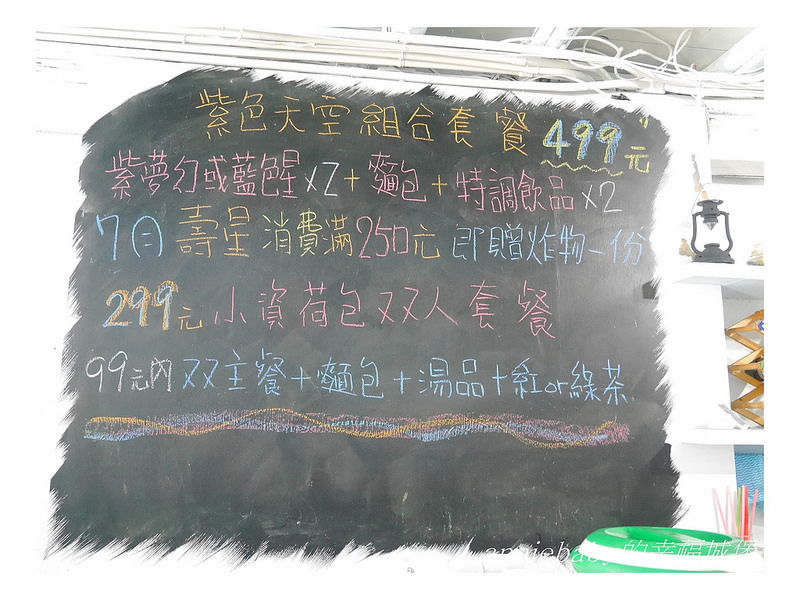 紫色天空組合套餐 499元
紫夢幻或藍色星x2+麵包+特調飲品x2
7月壽星消費滿250元即贈炸物一份
299元小資荷包双人套餐
199元內双主餐+麵包+湯品+紅or綠茶
anniebaby的幸福城堡